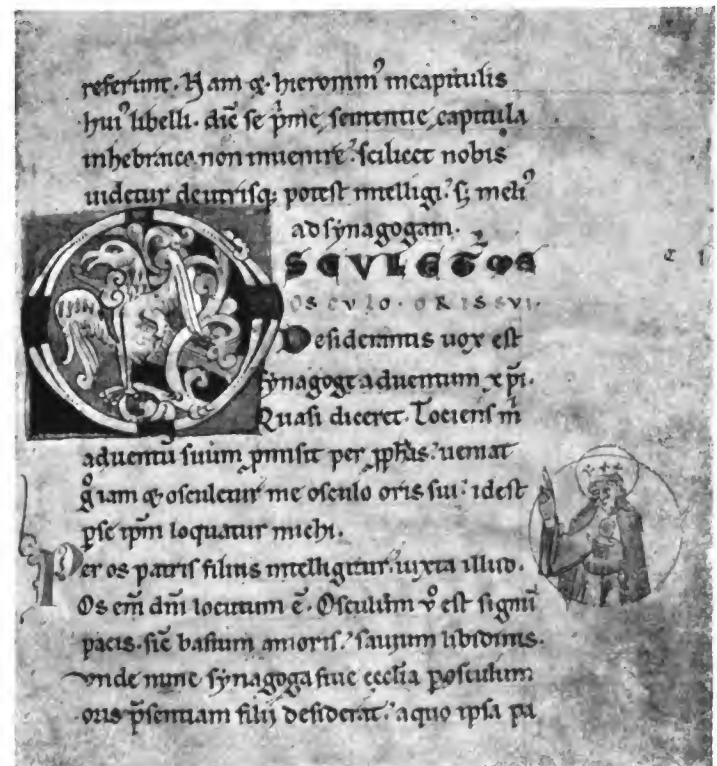 referunt. Nam & hieronimꝰ incapitulis
huiꝰ libelli. dic̄ se p̄me sententie capitula
inhebraico non inuenire. scilicet nobis
uidetur deutrisq; potest intelligi. s; meliꝰ
adsynagogam.
SCVLETVR ME
OSCVLO. ORIS SVI.
Desiderantis uox est
synagoge aduentum xp̄i.
Quasi diceret. Tociens m̄
aduentū suum ꝓmisit per ꝓphās. ueniat
& osculetur me osculo oris sui. idest
ꝑse ip̄m loquatur michi.
Per os patris filius intelligitur. iuxta illud.
Os em̄ dn̄i locutum ē. Osculum v̊ est signū
pacis. sic̄ basium amoris. sauium libidinis.
vnde nunc synagoga siue ecclia ꝑosculum
oris p̄sentiam filii desiderat. aquo ipsa pa